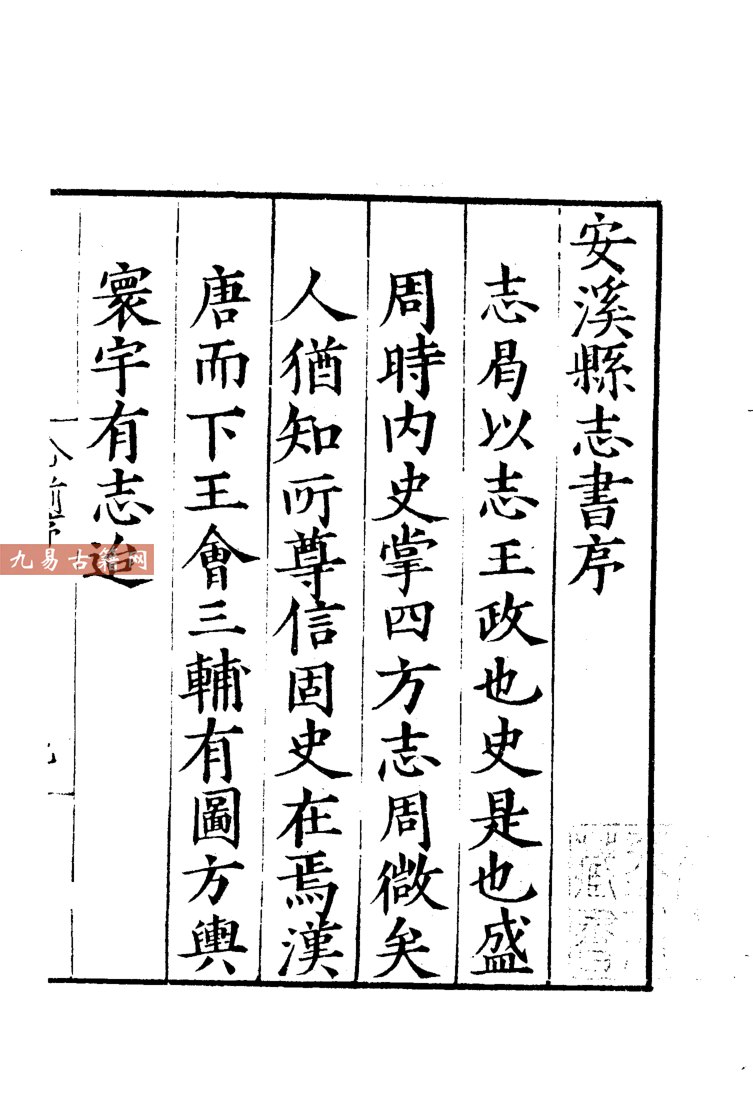 安溪縣志書序
志曷以志王政也史是也盛
周時内史掌四方志周微矣
人猶知所尊信固史在焉漢
唐而下王會三輔有圖方輿
寰宇有志迨
九易古籍网